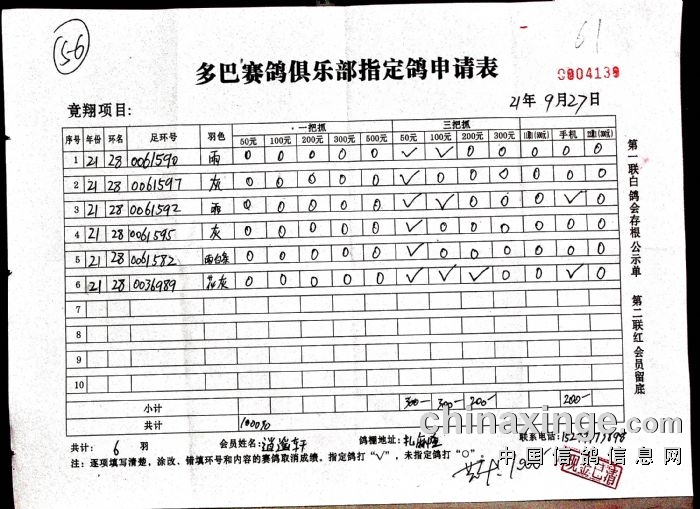 56
61
多巴赛鸽俱乐部指定鸽申请表
0004139
21年 9月27日
竟翔项目:
序号 年份 环名 足环号 羽色 一把抓 三把抓
50元 100元 200元 300元 500元 50元 100元 200元 300元 手机
1 21 28 0061590 雨 0 0 0 0 0 ✓ ✓ 0 0 0 0 0
2 21 28 0061597 灰 0 0 0 0 0 ✓ ✓ 0 0 0 0 0
3 21 28 0061592 雨 0 0 0 0 0 ✓ ✓ 0 0 0 ✓ 0
4 21 28 0061595 灰 0 0 0 0 0 ✓ ✓ 0 0 0 0 0
5 21 28 0061582 雨白条 0 0 0 0 0 ✓ ✓ 0 0 0 0 0
6 21 28 0036989 花灰 0 0 0 0 0 ✓ ✓ ✓ 0 0 ✓ 0
7
8
9
10
小计 300- 200- 200-
共计 1000
共计: 6 羽 会员姓名: 逍遥轩 鸽棚地址: 联系电话:
注: 逐项填写清楚, 涂改、错填环号和内容的赛鸽取消成绩。指定鸽打"✓", 未指定鸽打"O"。
第一联白 鸽会存根公示单 第二联红 会员留底
chinaxinge.com
中国信鸽信息网
现金已清